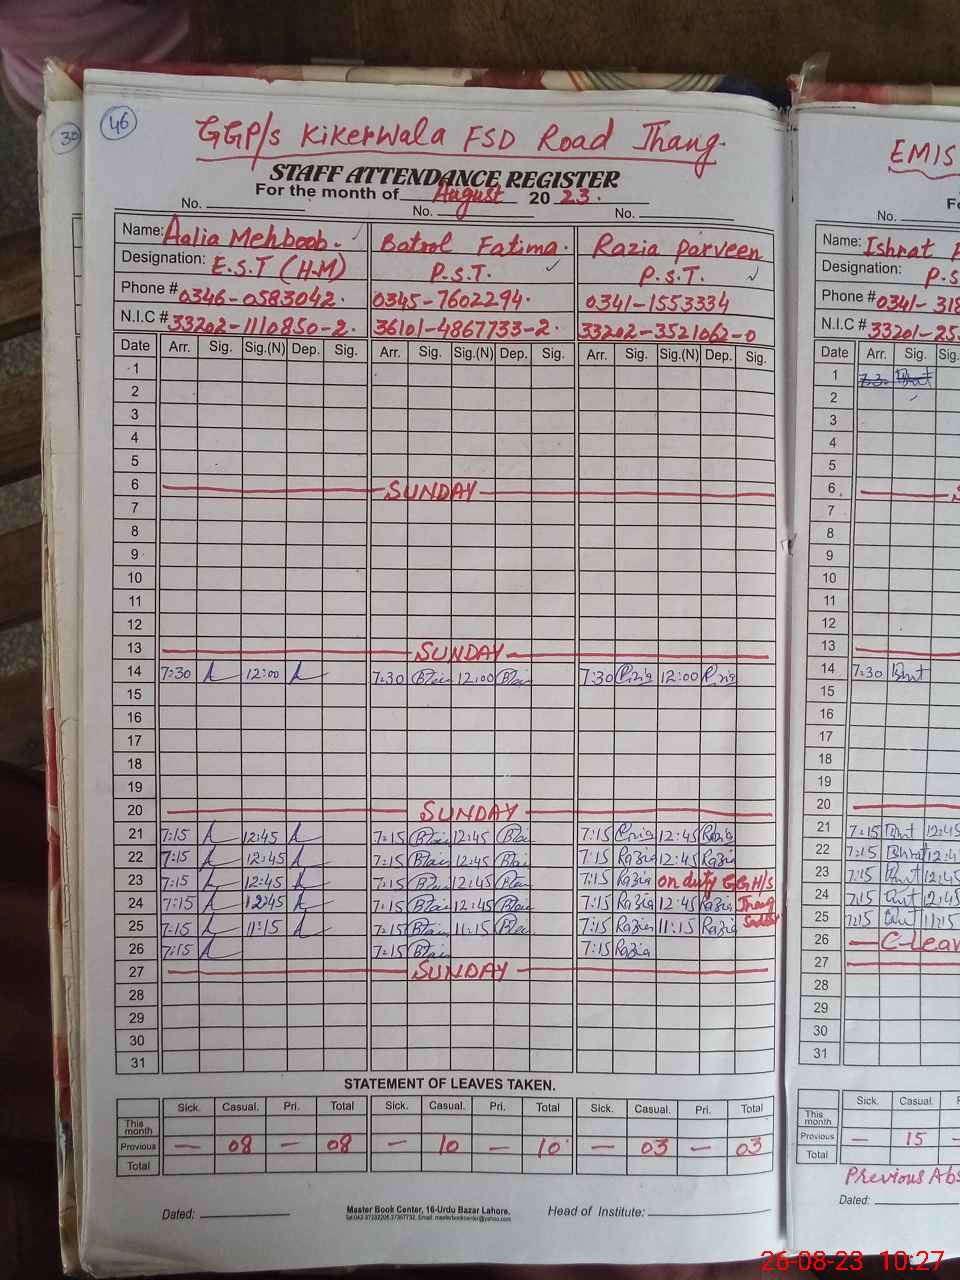 46
30
GGP/s Kikerwala FSD Road Jhang.
STAFF ATTENDANCE REGISTER
For the month of August 20 23.
No. No. No.
Name: Aalia Mehboob. Batool Fatima. Razia Parveen
Designation: E.S.T (H.M) P.S.T. P.S.T.
Phone # 0346-0583042. 0345-7602294. 0341-1553334
N.I.C # 33202-1110850-2. 36101-4867733-2. 33202-3521062-0
Date Arr. Sig. Sig.(N) Dep. Sig. Arr. Sig. Sig.(N) Dep. Sig. Arr. Sig. Sig.(N) Dep. Sig.
1
2
3
4
5
6 SUNDAY
7
8
9
10
11
12
13 SUNDAY
14 7:30 12:00 7:30 12:00 7:30 12:00
15
16
17
18
19
20 SUNDAY
21 7:15 12:45 7:15 12:45 7:15 12:45
22 7:15 12:45 7:15 12:45 7:15 Razia 12:45 Razia
23 7:15 12:45 7:15 12:45 7:15 Razia on duty GGH/S
24 7:15 12:45 7:15 12:45 7:15 Razia 12:45 Razia Jhang
25 7:15 11:15 7:15 11:15 7:15 Razia 11:15 Razia Saddar
26 7:15 7:15 7:15 Razia
27 SUNDAY
28
29
30
31
STATEMENT OF LEAVES TAKEN.
Sick. Casual. Pri. Total Sick. Casual. Pri. Total Sick. Casual. Pri. Total
This month
Previous — 08 — 08 — 10 — 10 — 03 — 03
Total
Dated: Master Book Center, 16-Urdu Bazar Lahore. Head of Institute:
EMIS
No.
Name: Ishrat
Designation: P.S
Phone # 0341-318
N.I.C # 33201-25
Date Arr. Sig. Sig.
1 7:30
2
3
4
5
6
7
8
9
10
11
12
13
14 7:30
15
16
17
18
19
20
21 7:15 12:45
22 7:15 Ishrat 12:4
23 7:15 12:45
24 7:15 12:45
25 7:15 11:15
26 C-Leav
27
28
29
30
31
Sick. Casual.
This month
Previous — 15 —
Total
Previous Abs
Dated:
26-08-23 10:27